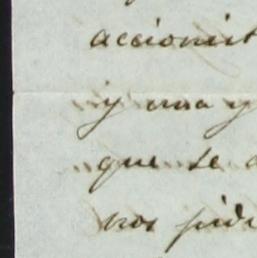 accionist
y una y
que se
nos pide